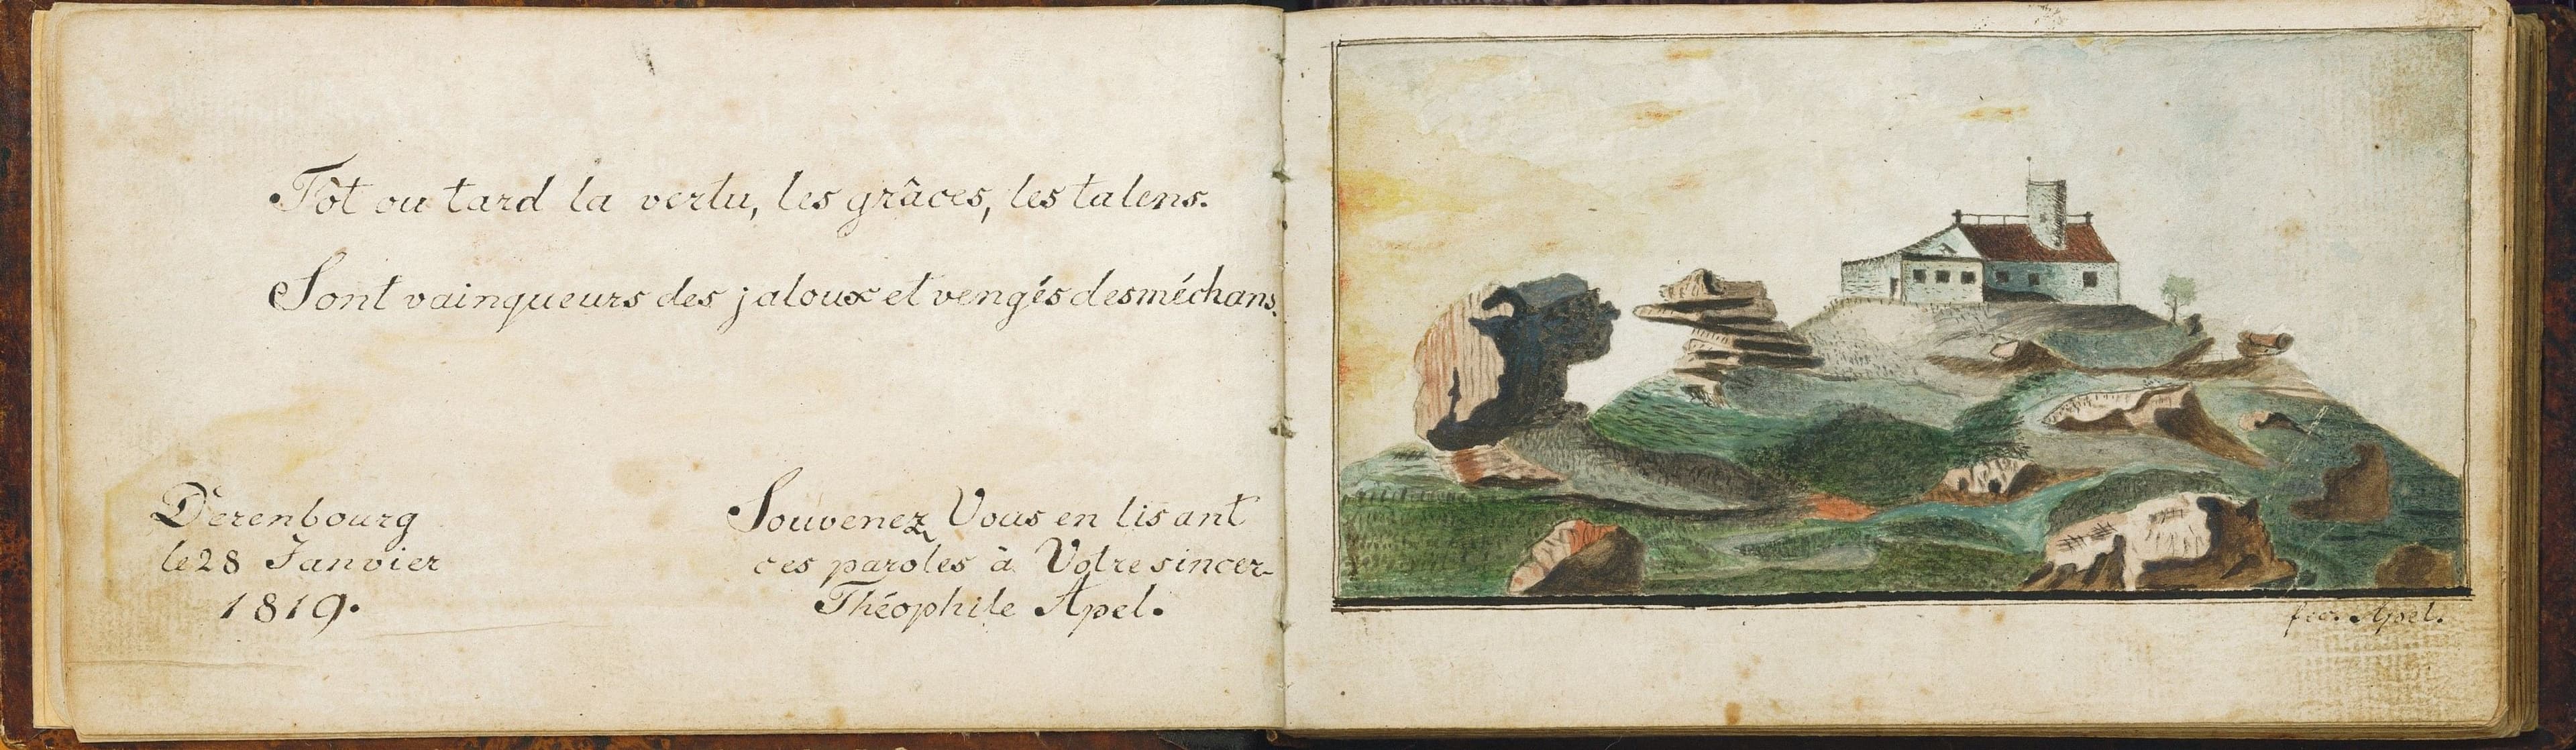 Tôt ou tard la vertu, les grâces, les talens.
Sont vainqueurs des jaloux et vengés des méchans.
Derenbourg
le 28 Janvier
1819.
Souvenez Vous en lisant
ces paroles à Votre sincer-
Théophile Apel.
fec. Apel.